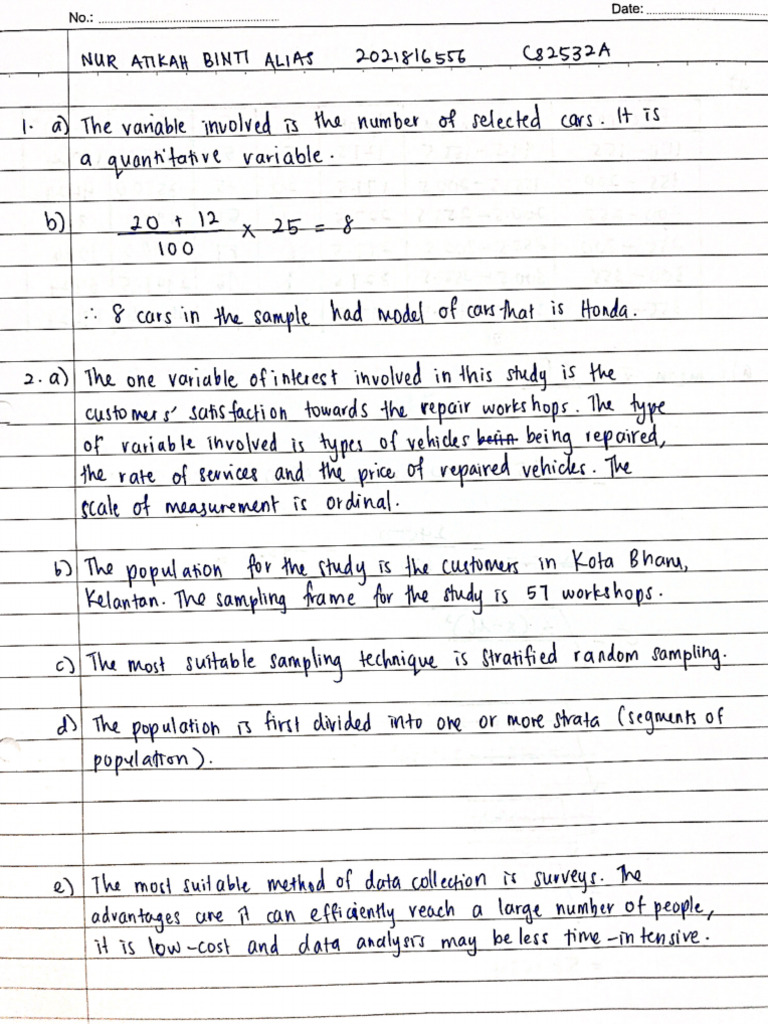 No.: ........................................ Date: ........................................
NUR ATIKAH BINTI ALIAS 2021816556 CS2532A
1. a) The variable involved is the number of selected cars. It is
a quantitative variable.
b) 20 + 12 / 100 × 25 = 8
∴ 8 cars in the sample had model of cars that is Honda.
2. a) The one variable of interest involved in this study is the
customers' satisfaction towards the repair workshops. The type
of variable involved is types of vehicles being repaired,
the rate of services and the price of repaired vehicles. The
scale of measurement is ordinal.
b) The population for the study is the customers in Kota Bharu,
Kelantan. The sampling frame for the study is 57 workshops.
c) The most suitable sampling technique is stratified random sampling.
d) The population is first divided into one or more strata (segments of
population).
e) The most suitable method of data collection is surveys. The
advantages are it can efficiently reach a large number of people,
it is low-cost and data analysis may be less time-intensive.